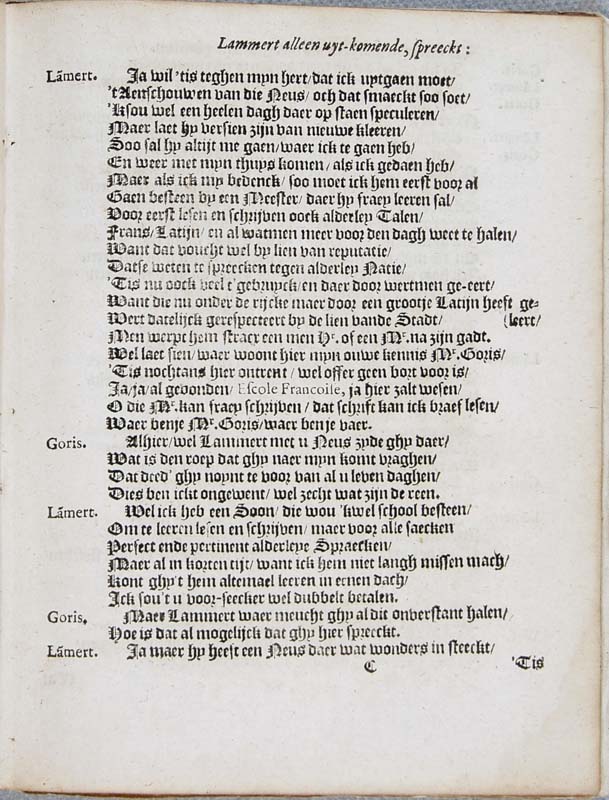 Lammert alleen uyt-komende, spreeckt:
Lãmert. Ja wil 'tis teghen myn hert/ dat ick uytgaen moet/
't Aenschouwen van die Neus/ och dat smaeckt soo soet/
'Ksou wel een heelen dagh daer op staen speculeren/
Maer laet hy versien zijn van nieuwe kleeren/
Soo sal hy altijt me gaen/ waer ick te gaen heb/
En weer met myn thuys komen/ als ick gedaen heb/
Maer als ick my bedenck/ soo moet ick hem eerst voor al
Gaen besteen by een Meester/ daer hy fraey leeren sal/
Voor eerst lesen en schrijven oock alderley Talen/
Frans/ Latijn/ en al watmen meer voor den dagh weet te halen/
Want dat voucht wel by lien van reputatie/
Datse weten te spreecken tegen alderley Natie/
'Tis nu oock veel t'gebruyck/ en daer door wertmen ge-eert/
Want die nu onder de rijcke maer door een grootje Latijn heeft ge-
Wert datelijck gerespecteert by de lien vande Stadt/ (leert/
Men werpt hem stracx een men Hr. of een Mr. na zijn gadt.
Wel laet sien/ waer woont hier myn ouwe kennis Mr. Goris/
'Tis nochtans hier ontrent/ wel offer geen bort voor is/
Ja/ ja/ al gevonden/ Escole Francoise, ja hier zalt wesen/
O die Mr. kan fraey schrijven/ dat schrift kan ick braef lesen/
Waer benje Mr. Goris/ waer benje vaer.
Goris. Alhier/ wel Lammert met u Neus zyde ghy daer/
Wat is den roep dat ghy naer myn komt vraghen/
Dat deed' ghy noynt te voor van al u leven daghen/
Dies ben ickt ongewent/ wel zecht wat zijn de reen.
Lãmert. Wel ick heb een Soon/ die wou 'kwel school besteen/
Om te leeren lesen en schrijven/ maer voor alle saecken
Perfect ende pertinent alderleye Spraecken/
Maer al in korten tijt/ want ick hem niet langh missen mach/
Kont ghy't hem altemael leeren in eenen dach/
Ick sou't u voor-seecker wel dubbelt betalen.
Goris. Maer Lammert waer meucht ghy al dit onverstant halen/
Hoe is dat al mogelijck dat ghy hier spreeckt.
Lãmert. Ja maer hy heeft een Neus daer wat wonders in steeckt/
C 'Tis